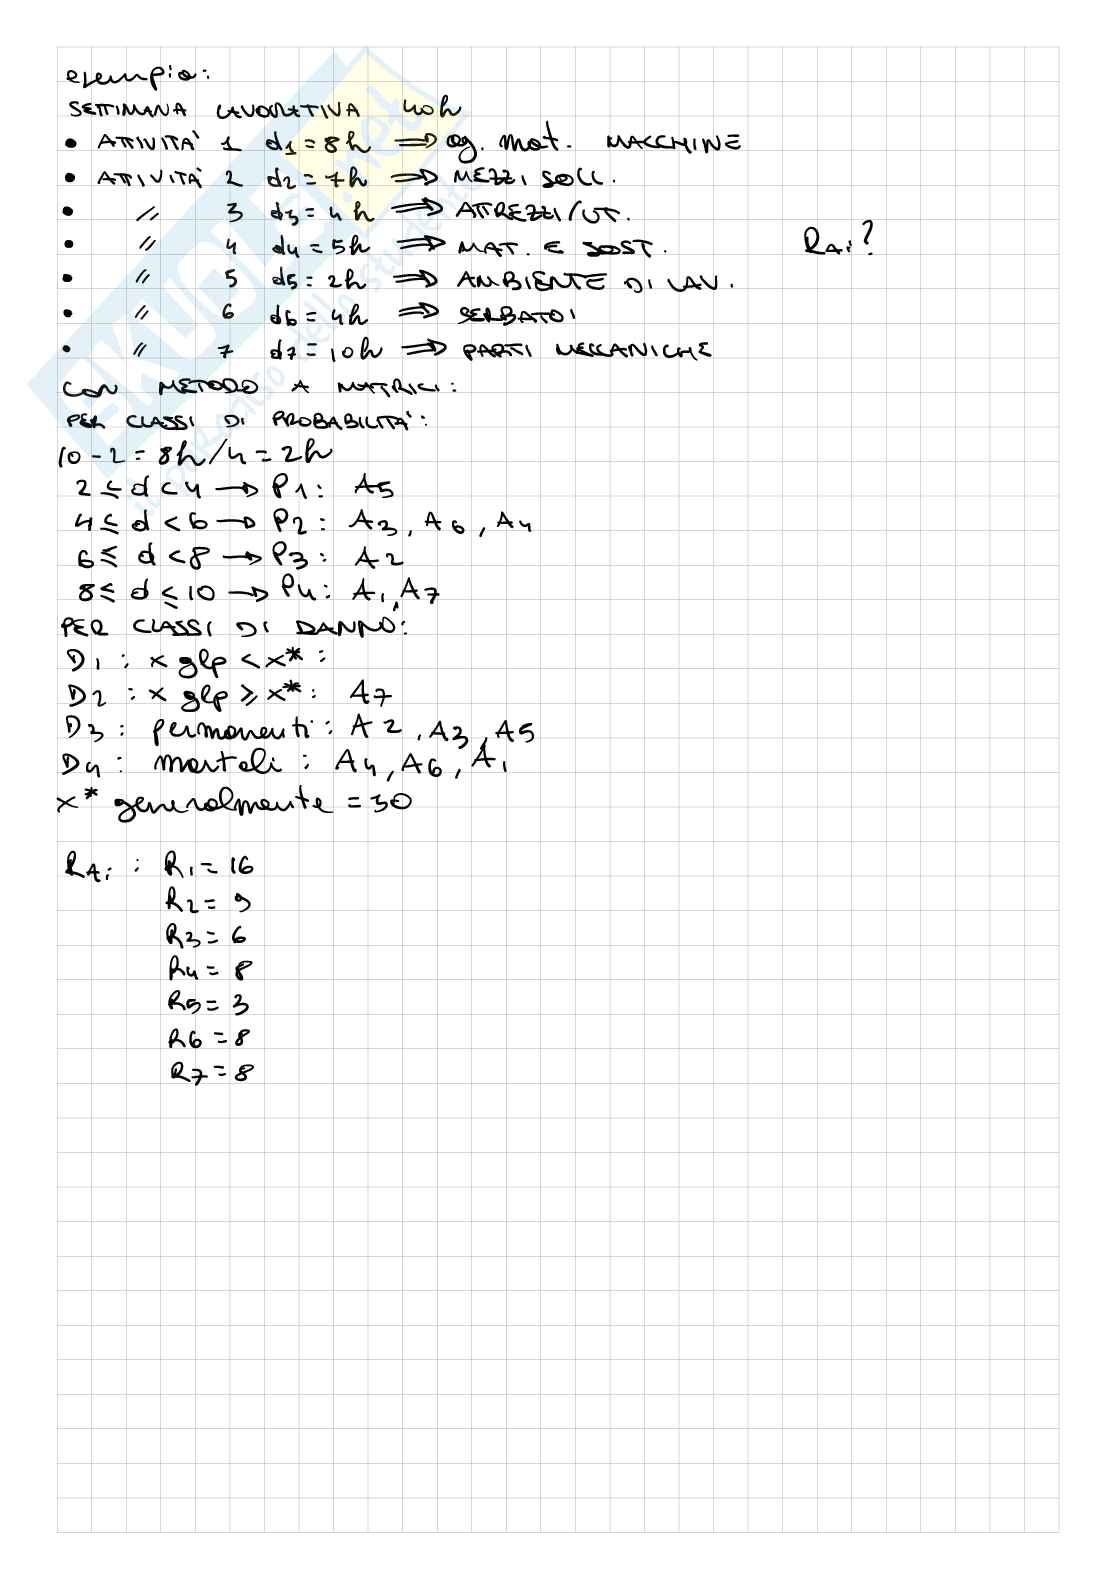 esempio:
SETTIMANA LAVORATIVA 40h
• ATTIVITÀ 1 d1 = 8h ⇒ ag. mat. MACCHINE
• ATTIVITÀ 2 d2 = 7h ⇒ MEZZI SOLL.
• // 3 d3 = 4h ⇒ ATTREZZI/UT.
• // 4 d4 = 5h ⇒ MAT. E SOST. RAi?
• // 5 d5 = 2h ⇒ AMBIENTE DI LAV.
• // 6 d6 = 4h ⇒ SERBATOI
• // 7 d7 = 10h ⇒ PARTI MECCANICHE
CON METODO A MATRICI:
PER CLASSI DI PROBABILITÀ:
10 - 2 = 8h/4 = 2h
2 ≤ d < 4 → P1: A5
4 ≤ d < 6 → P2: A3, A6, A4
6 ≤ d < 8 → P3: A2
8 ≤ d ≤ 10 → P4: A1, A7
PER CLASSI DI DANNO:
D1: x glp < x*:
D2: x glp ≥ x*: A7
D3: permanenti: A2, A3, A5
D4: mortali: A4, A6, A1
x* generalmente = 30
RAi: R1 = 16
R2 = 9
R3 = 6
R4 = 8
R5 = 3
R6 = 8
R7 = 8
SKUOLA.net